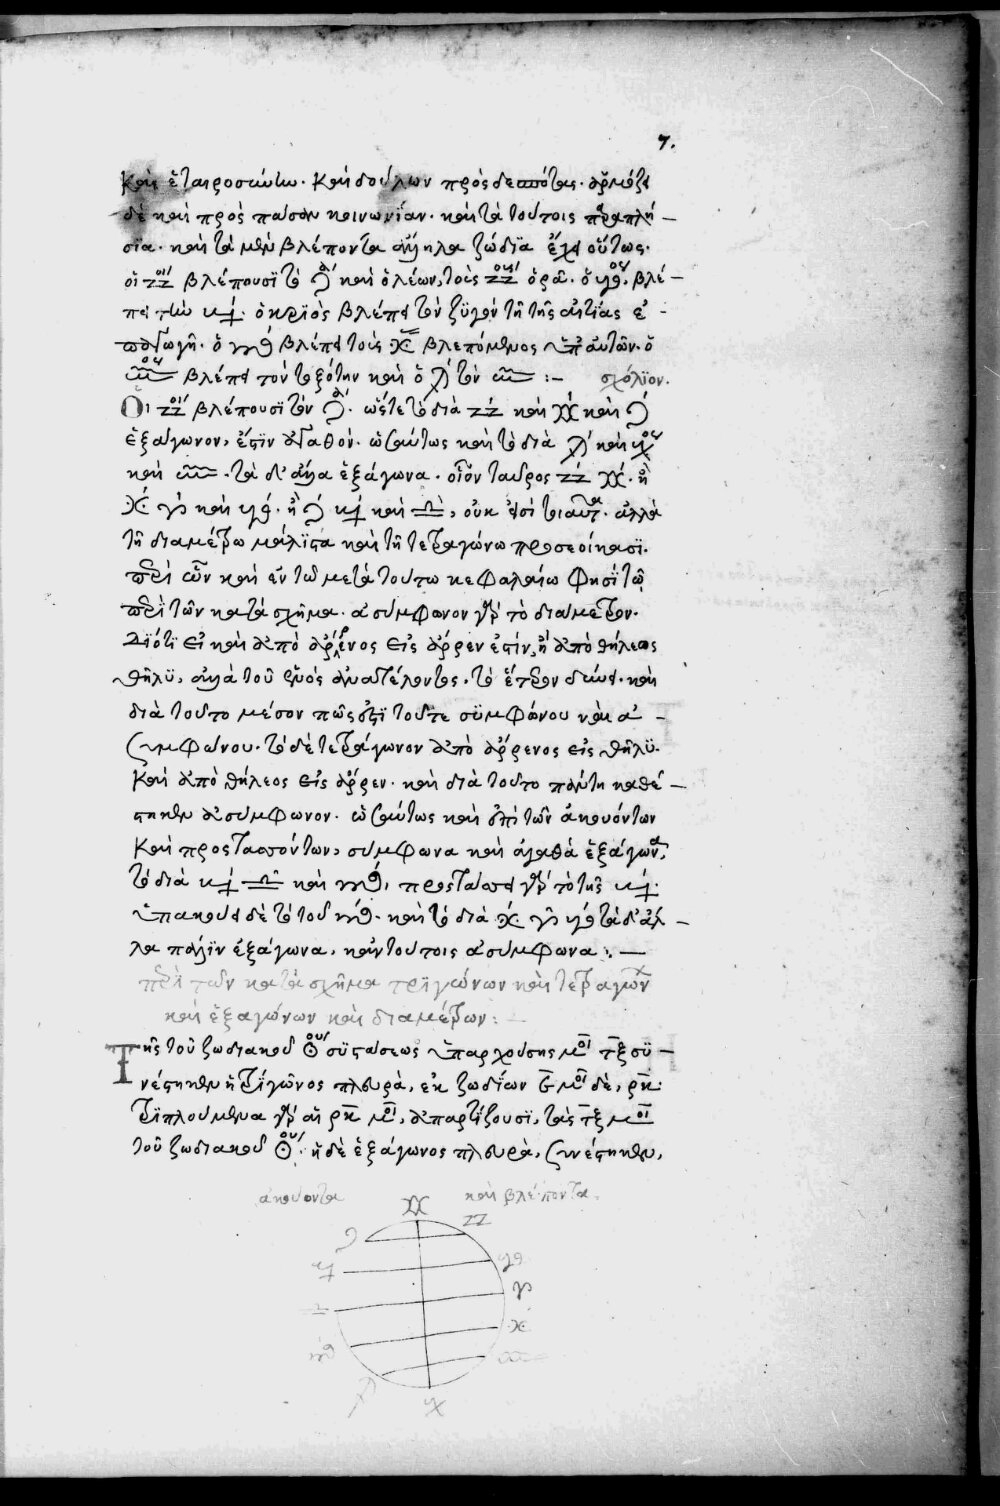 7.
καὶ ἑταιροσύνην. καὶ δούλων πρὸς δεσπότας. ἁρμόζει
δὲ καὶ πρὸς πᾶσαν κοινωνίαν. καὶ τὰ τούτοις παραπλή –
σϊα. καὶ τὰ μὲν βλέποντα ἄλληλα ζώδϊα ἔχει οὕτως.
οἱ ♊ βλέπουσϊ τὸ ♌ καὶ ὁ λέων, τοὺς ♊ ὁρᾶ. ὁ ♉, βλέ –
πει τὴν ♍. ὁ κριὸς βλέπει τὸν ζϋγὸν τῆ τῆς αἰτϊας ἐ –
παγωγῆ. ὁ ♏ βλέπει τοὺς ♓ βλεπόμενος ὑπ' αὐτῶν. ὁ
♒ βλέπει τὸν τοξότην καὶ ὁ ♐ τὸν ♒ :– σχόλϊον.
Οἱ ♊ βλέπουσϊ τὸν ♌. ὥστε τὸ διὰ ♊ καὶ ♋ καὶ ♌
ἑξάγωνον, ἐστϊν ἀγαθόν. ὡσαύτως καὶ τὸ διὰ ♐ καὶ ♑
καὶ ♒. τὰ δ' ἄλλα ἑξάγωνα. οἷον ταῦρος ♊ ♋. ἢ
♓ ♈ καὶ ♉. ἢ ♌ ♍ καὶ ♎, οὐκ εἰσὶ τοιαῦτα. ἀλλὰ
τῆ διαμέτρω μάλϊστα καὶ τῆ τετραγώνω προσεοίκασϊ.
περὶ ὧν καὶ ἐν τῶ μετὰ τοῦτω κεφαλαίω φησϊ τῶ
περὶ τῶν κατὰ σχῆμα. ἀσύμφωνον γὰρ τὸ διάμετρον.
Διότϊ εἰ καὶ ἀπὸ ἄρρενος εἰς ἄρρεν ἐστίν, ἢ ἀπὸ θήλεως
θῆλϋ, ἀλλὰ τοῦ ἑνὸς ἀνατέλοντος. τὸ ἕτερον δύνει. καὶ
διὰ τοῦτο μέσον πῶς ἐστϊ τοῦτε σϋμφώνου καὶ ἀ –
συμφώνου. τὸ δὲ τετράγωνον ἀπὸ ἄρρενος εἰς θῆλϋ.
καὶ ἀπὸ θήλεος εἰς ἄρρεν. καὶ διὰ τοῦτο πάντη καθέ –
στηκεν ἀσύμφωνον. ὡσαύτως καὶ ἐπὶ τῶν ἀκουόντων
καὶ προστασσόντων, σύμφωνα καὶ ἀγαθὰ ἑξάγωνα,
τὸ διὰ ♍ ♎ καὶ ♏, προστάσσει γὰρ τὸ τῆς ♍.
ὑπακούει δὲ τὸ τοῦ ♏. καὶ τὸ διὰ ♓ ♈ ♉ τὰ δ' ἄλ –
λα πάλϊν ἑξάγωνα, κἂν τούτοις ἀσύμφωνα :. —
περὶ τῶν κατὰ σχῆμα τρϊγώνων καὶ τετραγών
καὶ ἑξαγώνων καὶ διαμέτρων :—
Τῆς τοῦ ζωδιακοῦ συστάσεως ὑπαρχούσης μοι τξ σϋ –
νέστηκεν ἡ τρϊγῶνος πλευρὰ, ἐκ ζωδίων ε μοι δὲ, ρκ.
τρϊπλούμενα γὰρ αἱ ρκ μοι, ἀπαρτίζουσϊ, τὰς τξ μοι
τοῦ ζωδιακοῦ. ἡ δὲ ἑξάγωνος πλευρὰ, συνέστηκεν,
ἀκούοντα καὶ βλέποντα.
♋
♌ ♊
♍ ♉
♎ ♈
♏ ♓
♐ ♒
♑